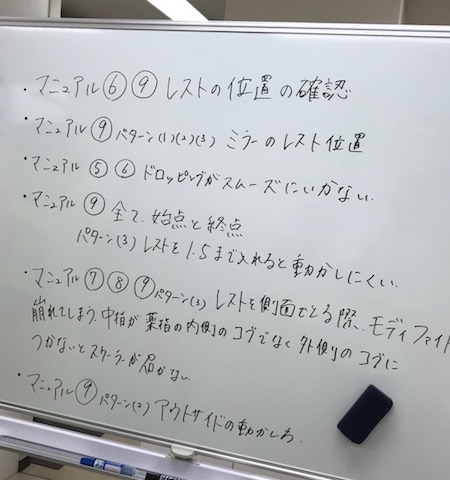 ・マニュアル⑥⑨レストの位置の確認
・マニュアル⑨パターン(1)(2)(3) ミラーのレスト位置
・マニュアル⑤⑥ドロッピングがスムーズにいかない.
・マニュアル⑨全て、始点と終点
パターン(3)レストを1.5まで入れると動かしにくい.
・マニュアル⑦⑧⑨パターン(3)レストを側面でとる際、モディファイド
崩れてしまう.中指が薬指の内側のコブでなく外側のコブに
つかないとスケーラーが届かない
・マニュアル⑨パターン(2)アウトサイドの動かし方.